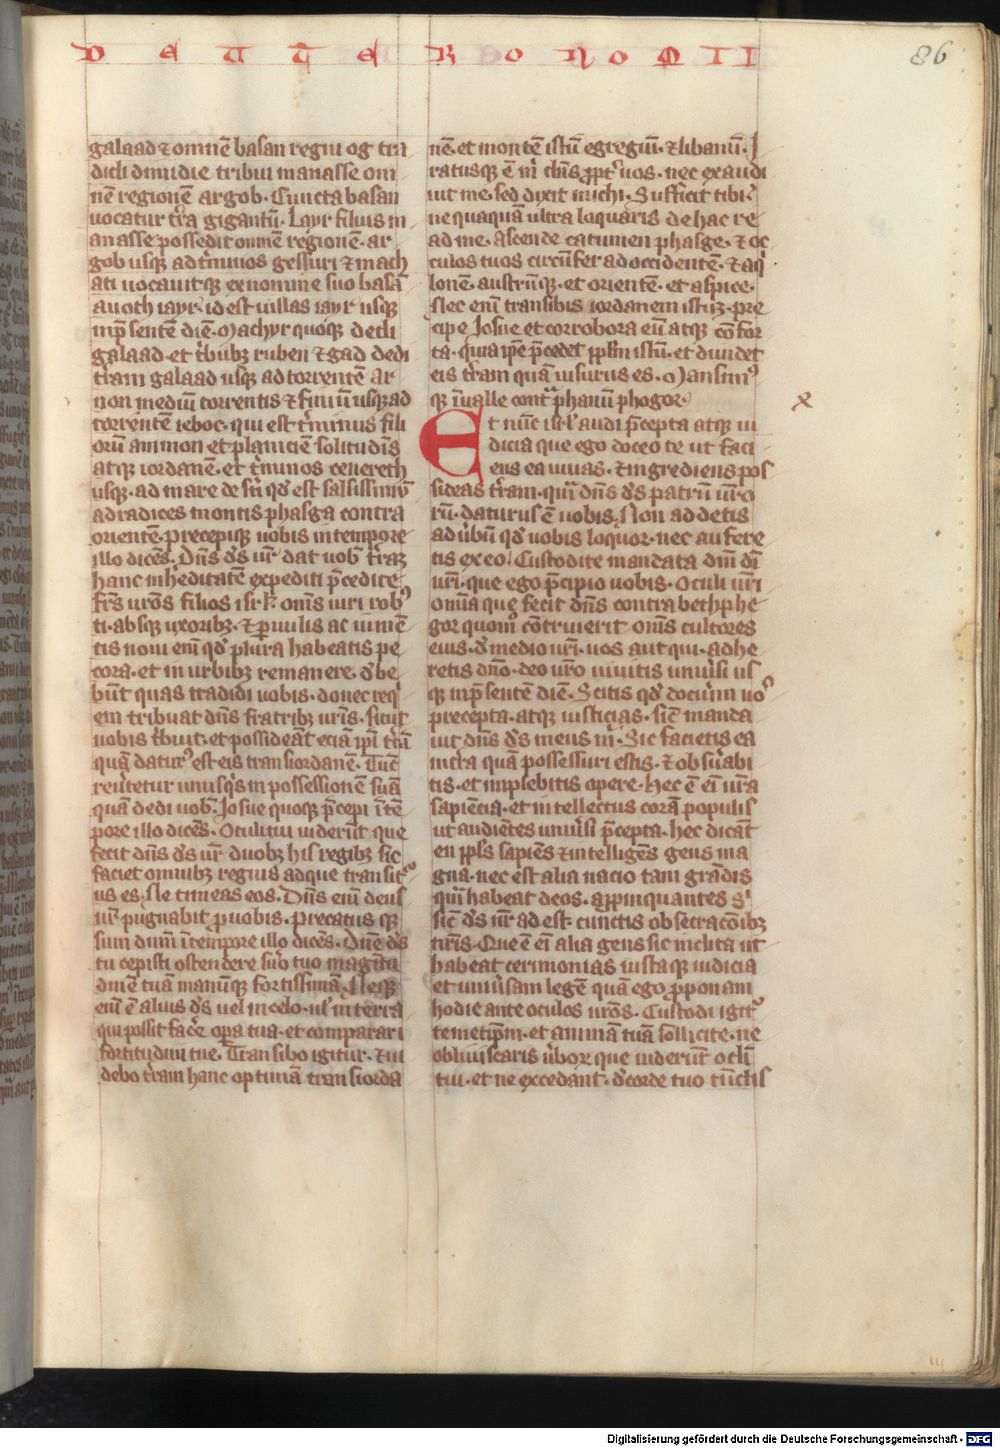 D E U T E R O N O M I I
86
galaad ⁊ omnē basan regni og tra
didi dimidie tribui manasse om
nē regionē argob. Cuncta basan
uocatur t̄ra gigantū. Iayr filius m
anasse possedit omnem regionē. ar
gob usq̨ ad t̄minos gessuri ⁊ mach
ati uocauitq̨ ex nomine suo basā
auoth iayr. id est uillas iayr usq̨
inp̄sentē diē. Machyr quoq̨ dedi
galaad. et t̄bub; ruben ⁊ gad dedi
t̄ram galaad usq̨ ad torrentē ar
non mediū torrentis ⁊ finiū usq̨ ad
torrentē ieboc. qui est t̄minus fili
orū ammon et planiciē solitudīs
atq̨ iordanē. et t̄minos cenereth
usq̨. ad mare desʼti qd̓ est salsissimū
ad radices montis phasga contra
orientē. precepiq̨ uobis in tempore
illo dicēs. Dn̄s ds̄ ur̄ dat uob̄ t̄raʒ
hanc inheditatē expediti p̄cedite
fr̄s uros̄ filios isrl̓. om̄s uiri rob᾽
ti. absq̨ uxorib;. ⁊ paruulis ac iumē
tis noui enī qd̓ plura habeatis pe
cora. et in urbib; remanere. d̓be
būt quas tradidi uobis. donec req̓
em tribuat dn̄s fratrib; ur̄is. sicut
uobis t̄buit. et possideāt eciā ip̄i t̄rā
quā datur᾽ est eis transiordanē. Tūc
reūtetur unusq̓s in possessionē suā
quā dedi uob̄. Iosue quoq̨ p̄cepi ī tē
pore illo dicēs. Oculi tui uiderūt que
fecit dn̄s ds̄ ur̄ duob; his regib; sic
faciet omnib; regnis adque transit᾽
us es. Ne timeas eos. Dn̄s enī deus
ur̄ pugnabit pro uobis. Precatus q̨
sum dnm̄ ī tempore illo dicēs. Dn̄e ds̄
tu cepisti ostendere suo tuo magītu
dinē tuā manūq̨ fortissimā. Neq̨
enī ē alius ds̄ uel in celo. ul̓ in terra
qui possit fac̄e opa tua. et comparari
fortitudini tue. Transibo igitur. ⁊ ui
debo t̄ram hanc optimā transiorda
nē. et montē istū egregiū. ⁊ libanū. I
ratusq̨ ē m̓ dn̄s ꝓpt̓ uos. nec exaudi
uit me. sed dixit michi. Sufficit tibi.
nequaquā ultra loquaris de hac re
ad me. ascende cacumen phasge. ⁊ oc
culos tuos circūfer ad occidentē. ⁊ aq̓
lonē. austrūq̨. et orientē. et aspice.
Nec enī transibis iordanem istuʒ. pre
cipe Iosue et corrobora eū atq̨ cōfor
ta. quia ip̄e p̄cedet pp̄lm istū. et diuidet
eis t̄ram quā uisurus es. Mansim᾽
q̨ ī ualle contra phanū phogor.
x
Et nūc isrl̓ audi p̄cepta atq̨ iu
dicia que ego doceo te ut faci
ens ea uiuas. ⁊ ingrediens pos
sideas t̄ram. quā dn̄s ds̄ patrū ur̄o
rū. daturus ē uobis. Non addetis
ad ūbū qd̓ uobis loquor. nec aufere
tis ex eo. Custodite mandata dn̄i dī
ur̄i. que ego p̄cipio uobis. Oculi ur̄i
omīa que fecit dn̄s contra bethphe
gor quom̄ cōtriuerit om̄s cultores
eius. d̓ medio ur̄i. uos aut̄ qui. adhe
retis dn̄o. deo ur̄o uiuitis unūsi us
q̨ inp̄sentē diē. Scitis qd̓ docuīm uo᾽
precepta. atq̨ iusticias. sic̄ manda
uit dn̄s ds̄ meus m̓. Sic facietis ea
in t̄ra quā possessuri estis. ⁊ obsūabi
tis. et implebitis opere. hec ē eī ur̄a
sapiēcia. et intellectus corā populis
ut audiētes unūsi p̄cepta. hec dicāt
en pp̄ls sapiēs ⁊ intelligēs gens ma
gna. nec est alia nacio tam grādis
quī habeat deos. appinquantes s᾽
sic̄ ds̄ nr̄ adest. cunctis obsecraciōib;
nr̄is. Que ē eī alia gens sic inclita ut
habeat cerimonias iustaq̨ iudicia
et uniūsam legē quā ego proponam
hodie ante oculos ur̄os. Custodi igit᾽
temetip̄m. et animā tuā sollicite. ne
obliuiscaris ūbor̨ que uiderūt ocl̄i
tui. et ne excedāt. d̓ corde tuo cūctis
Digitalisierung gefördert durch die Deutsche Forschungsgemeinschaft - DFG